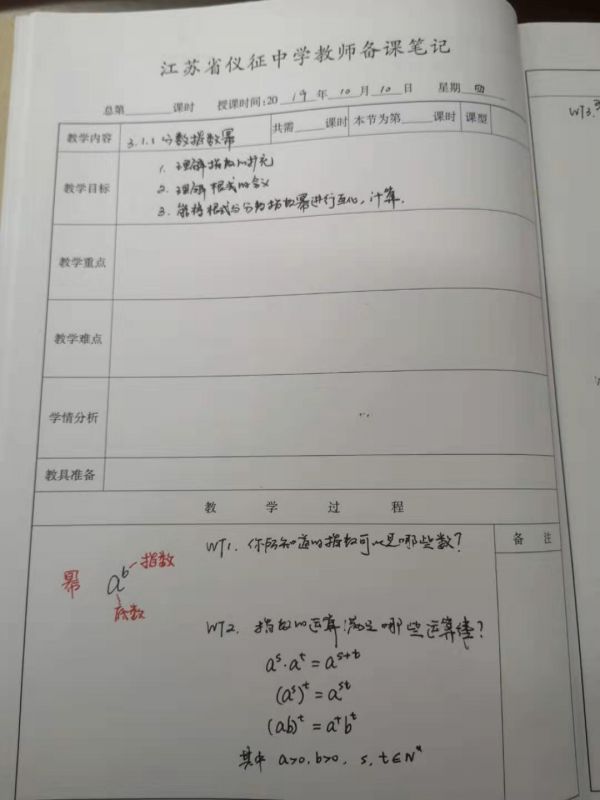 江苏省仪征中学教师备课笔记
总第 课时 授课时间:2019年10月10日 星期四
教学内容 3.1.1 分数指数幂 共需 课时 本节为第 课时 课型
教学目标
1. 理解指数的扩充
2. 理解根式的含义
3. 能将根式与分数指数幂进行互化,计算.
教学重点
教学难点
学情分析
教具准备
教 学 过 程
备 注
WT1. 你所知道的指数可以是哪些数?
幂 a^b 指数
底数
WT2. 指数的运算满足哪些运算律?
a^s·a^t=a^{s+t}
(a^s)^t=a^{st}
(ab)^t=a^t b^t
其中 a>0,b>0, s,t∈N*
WT3.